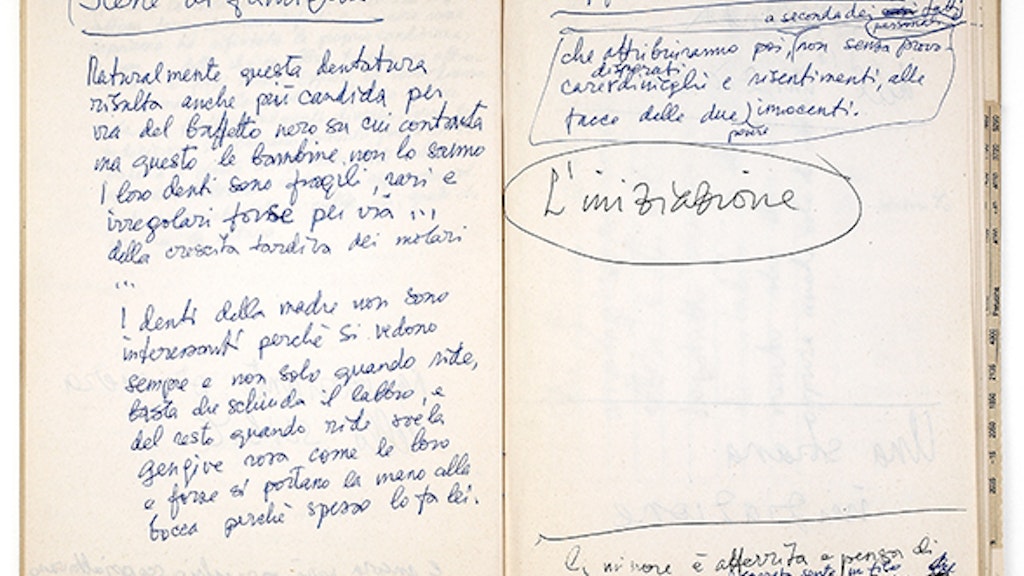 Scene di famiglia
Naturalmente questa dentatura
risalta anche più candida per
via del baffetto nero su cui contrasta
ma questo le bambine non lo sanno
I loro denti sono fragili, rari e
irregolari forse per via ...
della crescita tardiva dei molari
...
I denti della madre non sono
interessanti perchè si vedono
sempre e non solo quando ride,
basta che schiuda il labbro, e
del resto quando ride svela
gengive rosa come le loro
e forse si portano la mano alla
bocca perchè spesso lo fa lei.
a seconda dei fatti
che attribuiranno poi, non senza provo
disperati
care dinieghi e risentimenti, alle
tacce delle due innocenti.
povere
L'iniziazione
minore è atterrita e pensa di